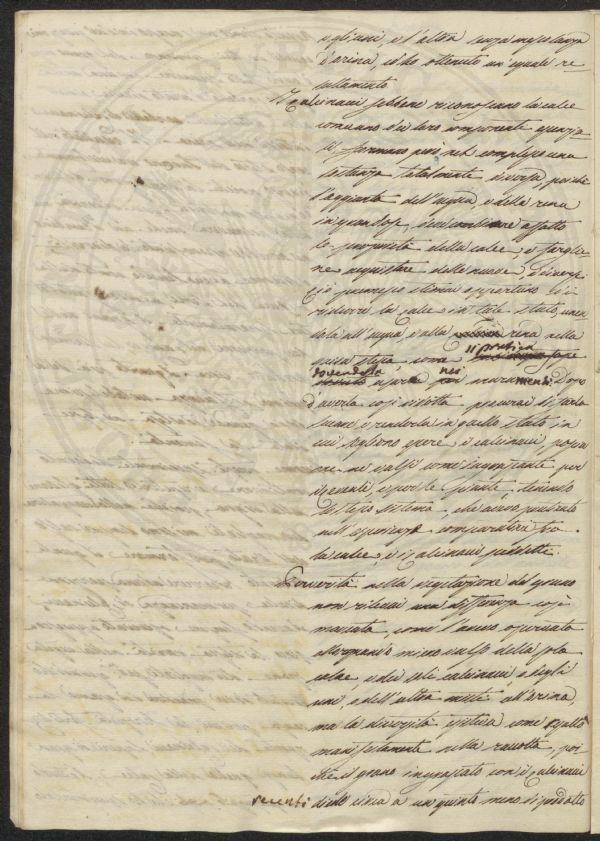 e gli uni, e l'altra senza mescolanza
d'orina, ed ho ottenuto un'eguale re-
sultamento.
I calcinacci sebbene riconoscano la calce
come uno dei loro componenti essenzia
li, formano però nel complesso una
sostanza totalmente diversa, poiché
l'aggiunta dell'acqua, e della rena
in grandose, affatto
le proprietà della calce, e farglie
ne acquistare delle nuove, Diversi
ciò stimai opportuno di ri
durre la calce in tale stato, unen
dola all'acqua, e alla rena nella
stessa, come si pratica
dovendola usare nei muramenti. Dopo
d'averla così ridotta procurai di farla
seccare e renderla in quello stato in
cui sogliono essere i calcinacci, poscia
me ne valsi come ingrassante per
i cereali, e per le piante, tenendo
lo stesso sistema, che aveva praticato
nell'esperienze comparative fra
la calce, e i calcinacci suddetti.
Per verità nella vegetazione del grano
non rilevai una differenza così
marcata, come l'aveva osservata
allorquando mi era valso della sola
calce, e dei soli calcinacci e degli
uni, e dell'altra misti all'orina,
ma la diversità esisteva come resultò
manifestamente nella raccolta, poi
che il grano ingrassato con i calcinacci
recenti diede circa a un quinto meno di prodotto